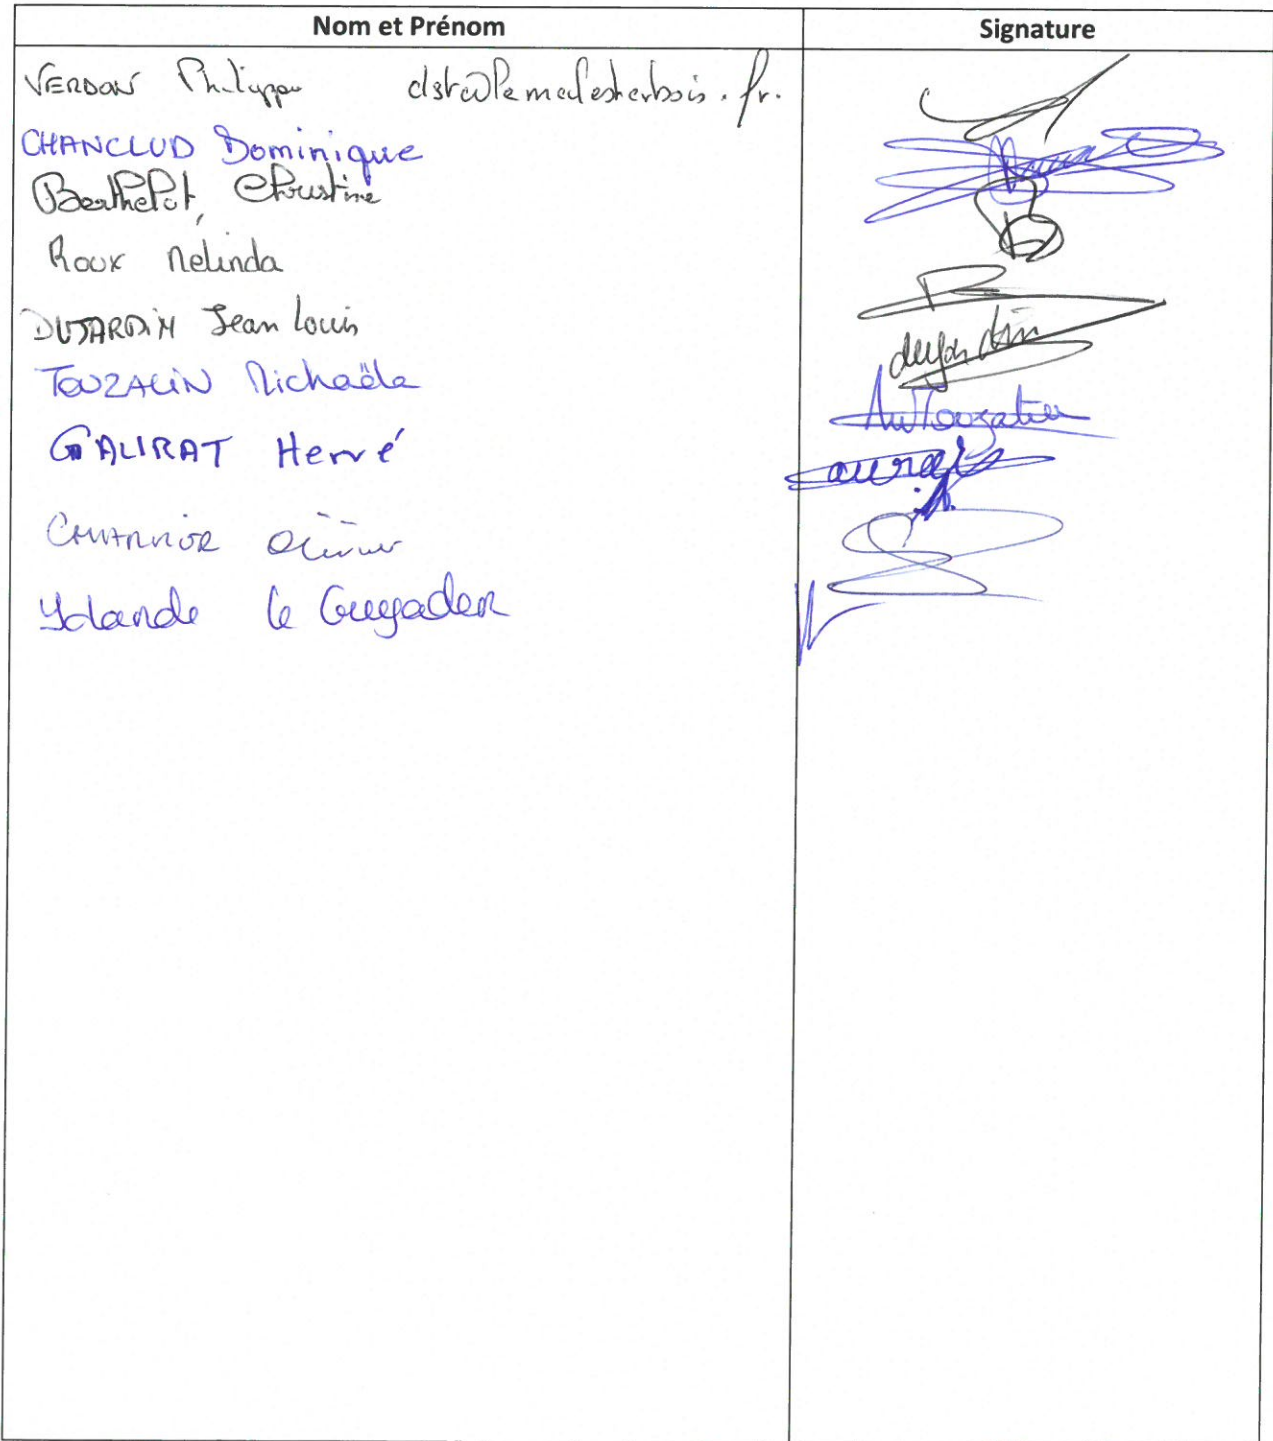 Nom et Prénom Signature
VERDON Philippe dst@lemalesherbois.fr.
CHANCLUD Dominique
Berthelot, Christine
Roux Mélinda
DUJARDIN Jean Louis dujardin
TOUZALIN Michaële
GALIRAT Hervé
Olivier
Yolande le Guyader